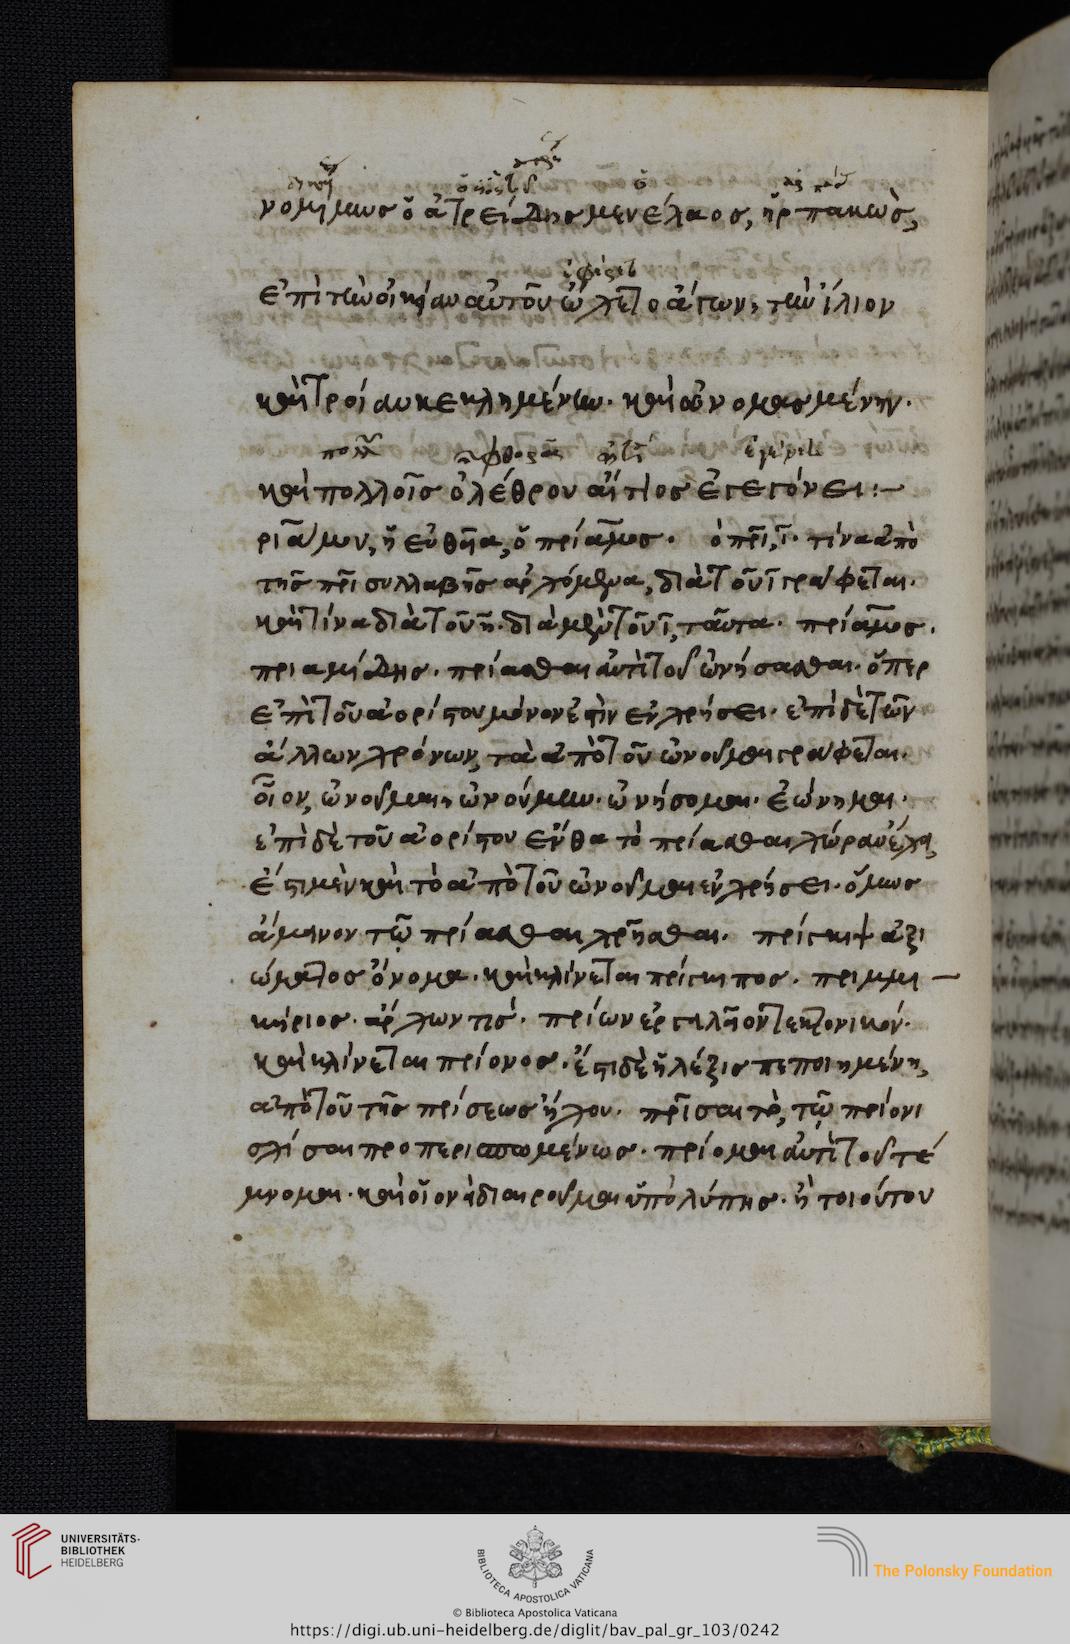 νομίμως ὁ ἀτρείδης μενέλαος, ἡρπακὼς,
ἐφίκετο
ἐπὶ τὴν οἰκίαν αὐτοῦ ᾤχετο ἄγων, τὴν ἴλιον
καὶ τροίαν κεκλημένην. καὶ ὠνομασμένην.
καὶ πολλοῖς ὀλέθρου αἴτιος ἐγεγόνει :—
ριᾶμον, ἢ εὐθεῖα, ὁ πρίαμος. ὁ πρῖ, ῑ. τίνα ἀπὸ
τῆς πρῖ συλλαβῆς ἀρχόμενα, διὰ τοῦ ῑ γράφεται.
καὶ τίνα διὰ τοῦ η. διὰ μὲν τοῦ ῑ, ταῦτα. πρίαμος.
πριαμίδης. πρίασθαι ἀντὶ τοῦ ὠνήσασθαι. ὅπερ
ἐπὶ τοῦ ἀορίστου μόνον ἐστὶν ἐν χρήσει. ἐπὶ δὲ τῶν
ἄλλων χρόνων, τὰ ἀπὸ τοῦ ὠνοῦμαι γράφεται.
οἷον, ὠνοῦμαι, ὠνούμην. ὠνήσομαι. ἐώνημαι.
ἐπὶ δὲ τοῦ ἀορίστου ἔνθα τὸ πρίασθαι χώραν ἔχει,
ἔστι μὲν καὶ τὸ ἀπὸ τοῦ ὠνοῦμαι ἐν χρήσει. ὅμως
ἄμεινον τῷ πρίασθαι χρῆσθαι. πρίγκιψ ἀξι
ώματος ὄνομα. καὶ κλίνεται πρίγκιπος. πριμμι—
κήριος. ἄρχων τίς. πρίων ἐργαλεῖον τεκτονικόν.
καὶ κλίνεται πρίονος. ἔστι δὲ ἡ λέξις πεποιημένη,
ἀπὸ τοῦ τῆς πρίσεως ἤχου. πρῖσαι τὸ, τῷ πρίονι
σχίσαι προπερισπωμένως. πρίομαι ἀντὶ τοῦ τέ
μνομαι. καὶ οἷον εἰ διαιροῦμαι ὑπὸ λύπης. ἢ τοιούτου
UNIVERSITÄTS-
BIBLIOTHEK
HEIDELBERG
BIBLIOTECA APOSTOLICA VATICANA
The Polonsky Foundation
© Biblioteca Apostolica Vaticana
https://digi.ub.uni-heidelberg.de/diglit/bav_pal_gr_103/0242